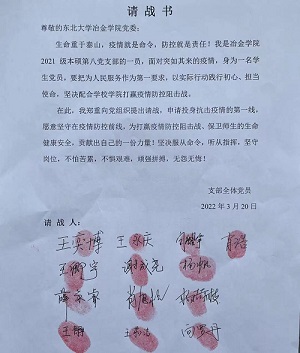 请 战 书
尊敬的东北大学冶金学院党委：
生命重于泰山，疫情就是命令，防控就是责任！我是冶金学院
2021 级本硕第八党支部的一员，面对突如其来的疫情，身为一名学
生党员，要把为人民服务作为第一要求，以实际行动践行初心、担当
使命，坚决配合学校学院打赢疫情防控阻击战。
在此，我郑重向党组织提出请战，申请投身抗击疫情的第一线，
愿意坚守在疫情防控前线，为打赢疫情防控阻击战、保卫师生的生命
健康安全，贡献出自己的一份力量！坚决服从命令，听从指挥，坚守
岗位，不怕苦累，不惧艰难，顽强拼搏，无怨无悔！
支部全体党员
2022 年 3 月 20 日
请 战 人：